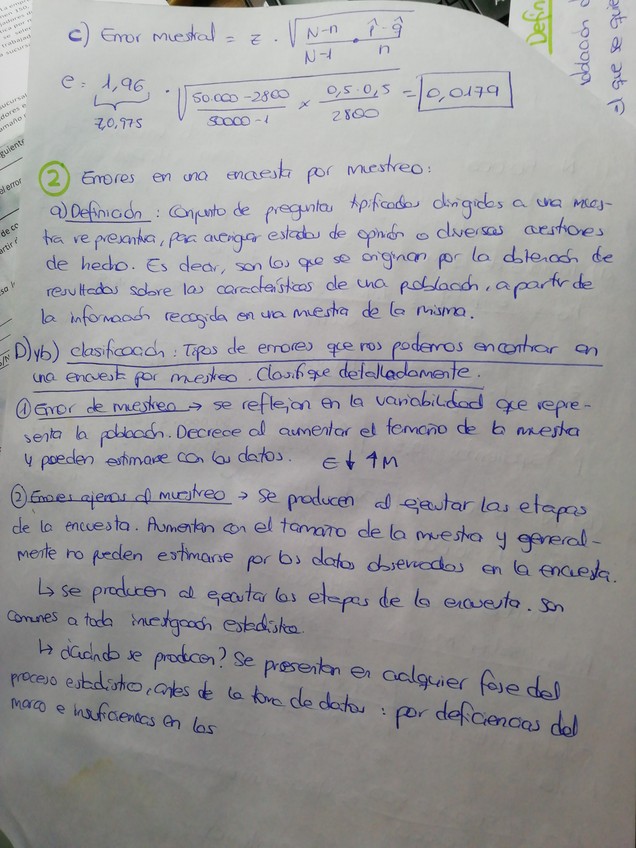 c) Error muestral = z · √ N-n / N-1 · p̂·q̂ / n
e = 1,96 · √ 50.000-2800 / 50000-1 × 0,5·0,5 / 2800 = 0,0179
z0,975
2 Errores en una encuesta por muestreo:
a) Definición: Conjunto de preguntas tipificadas dirigidas a una mues-
tra representiva, para averiguar estados de opinión o diversas cuestiones
de hecho. Es decir, son los que se originan por la obtención de
resultados sobre las características de una población, a partir de
la información recogida en una muestra de la misma.
D) y b) clasificación: Tipos de errores que nos podemos encontrar en
una encuesta por muestreo. Clasifique detalladamente.
① Error de muestreo → se reflejan en la variabilidad que repre-
senta la población. Decrece al aumentar el tamaño de la muestra
y pueden estimarse con los datos. E↓ ↑M
② Errores ajenos al muestreo → Se producen al ejecutar las etapas
de la encuesta. Aumentan con el tamaño de la muestra y general-
mente no pueden estimarse por los datos observados en la encuesta.
↳ se producen al ejecutar las etapas de la encuesta. Son
comunes a toda investigación estadística.
↳ ¿cuándo se producen? Se presentan en cualquier fase del
proceso estadístico, antes de la toma de datos: por deficiencias del
marco e insuficiencias en los
Defin
población
que se que